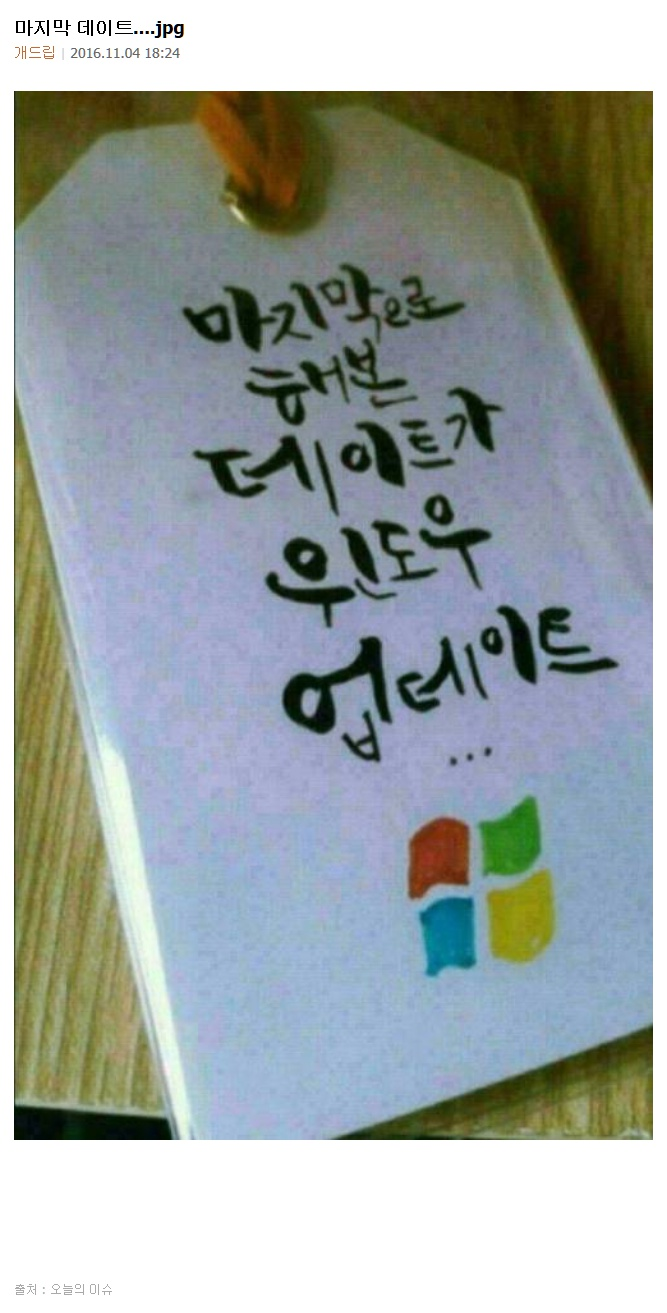 마지막 데이트....jpg
개드립 | 2016.11.04 18:24
마지막으로
해본
데이트가
윈도우
업데이트
...
출처 : 오늘의 이슈